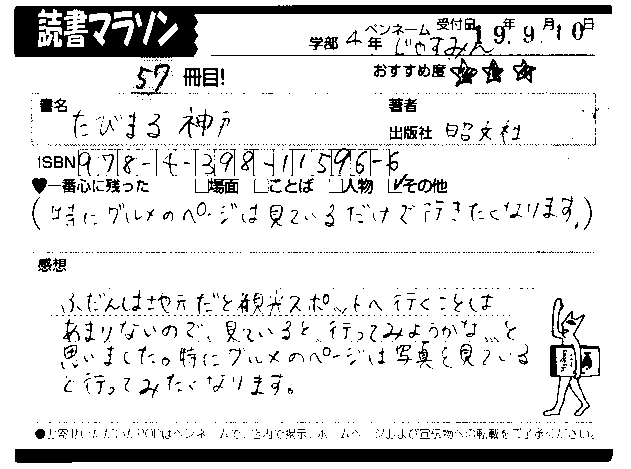 読書マラソン
学部 4年 ペンネーム じゃすみん 受付日 19年9月10日
57冊目! おすすめ度 ★★★
書名 たびまる 神戸 著者
出版社 昭文社
ISBN 978-4-398-11596-6
♥一番心に残った □場面 □ことば □人物 ☑その他
(特にグルメのページは見ているだけで行きたくなります。)
感想
ふだんは地元だと観光スポットへ行くことは
あまりないので、見ていると、行ってみようかな…と
思いました。特にグルメのページは写真を見ている
と行ってみたくなります。
●お寄せいただいたPOPはペンネームで、店内で掲示、ホームページおよび宣伝物への転載をご了承ください。